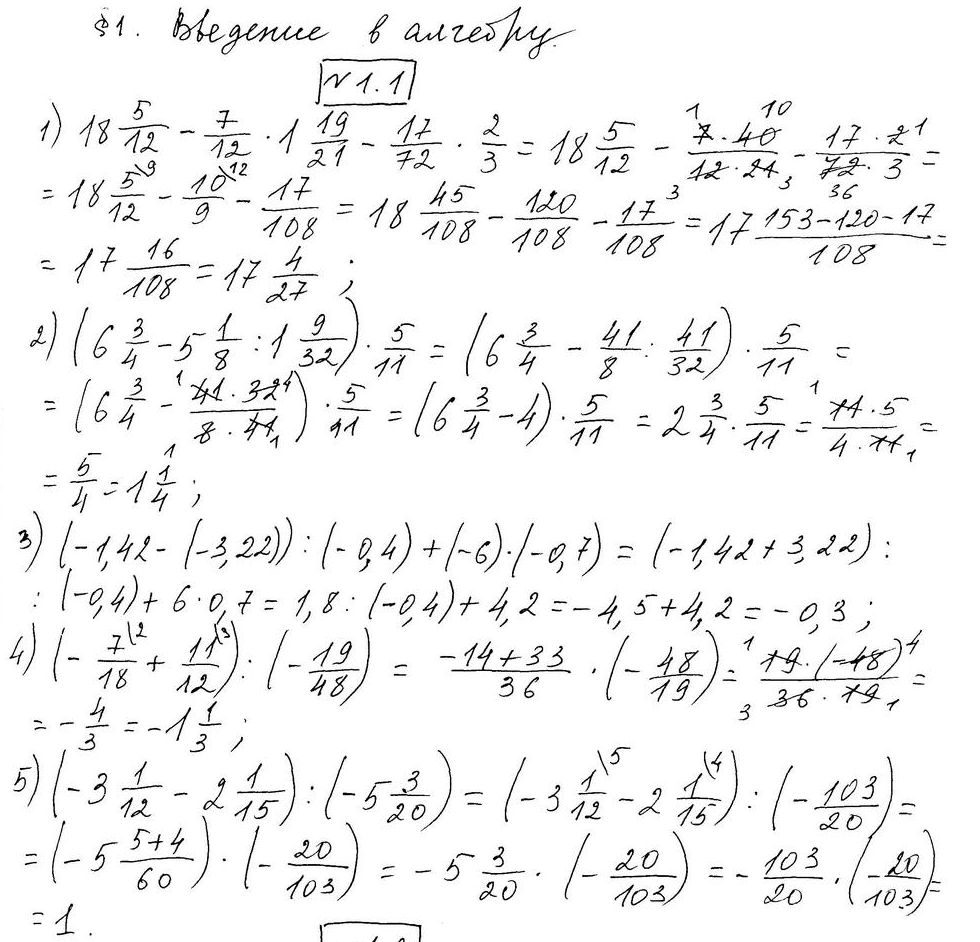 §1. Введение в алгебру.
№1.1
1) 18 5/12 − 7/12 · 1 19/21 − 17/72 · 2/3 = 18 5/12 − 7·40/12·21 − 17·2/72·3 =
= 18 5/12 − 10/9 − 17/108 = 18 45/108 − 120/108 − 17/108 = 17 153−120−17/108 =
= 17 16/108 = 17 4/27 ;
2) (6 3/4 − 5 1/8 : 1 9/32) · 5/11 = (6 3/4 − 41/8 : 41/32) · 5/11 =
= (6 3/4 − 41·32/8·41) · 5/11 = (6 3/4 − 4) · 5/11 = 2 3/4 · 5/11 = 11·5/4·11 =
= 5/4 = 1 1/4 ;
3) (−1,42 − (−3,22)) : (−0,4) + (−6) · (−0,7) = (−1,42 + 3,22) :
: (−0,4) + 6 · 0,7 = 1,8 : (−0,4) + 4,2 = −4,5 + 4,2 = −0,3 ;
4) (− 7/18 + 11/12) : (− 19/48) = −14+33/36 · (− 48/19) = 19·(−48)/36·19 =
= − 4/3 = −1 1/3 ;
5) (−3 1/12 − 2 1/15) : (−5 3/20) = (−3 1/12 − 2 1/15) : (− 103/20) =
= (−5 5+4/60) · (− 20/103) = −5 3/20 · (− 20/103) = − 103/20 · (− 20/103) =
= 1.